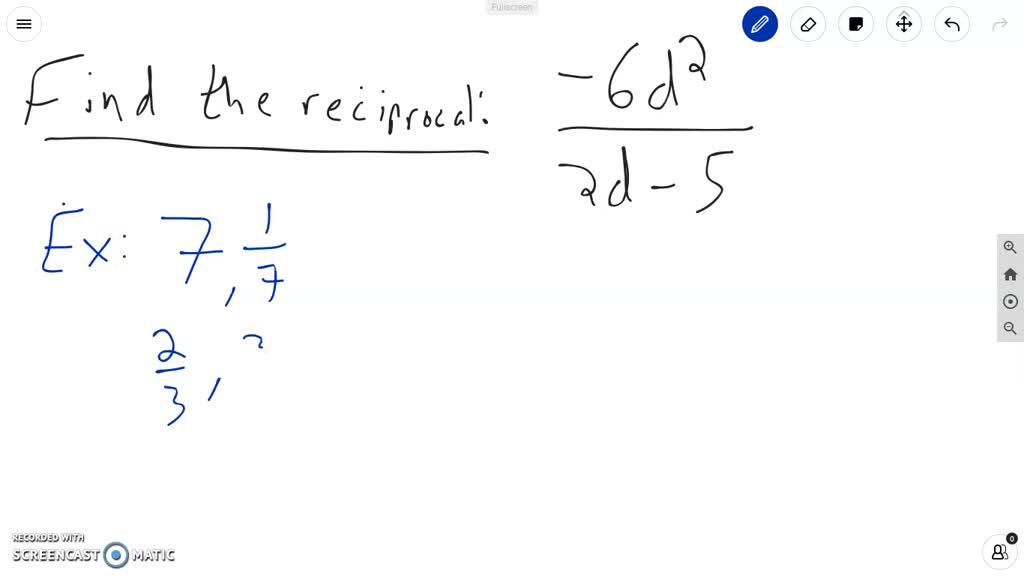 Fullscreen
Find the reciprocal: -6d²/2d - 5
Ex: 7, 1/7
2/3,
RECORDED WITH
SCREENCAST MATIC
0